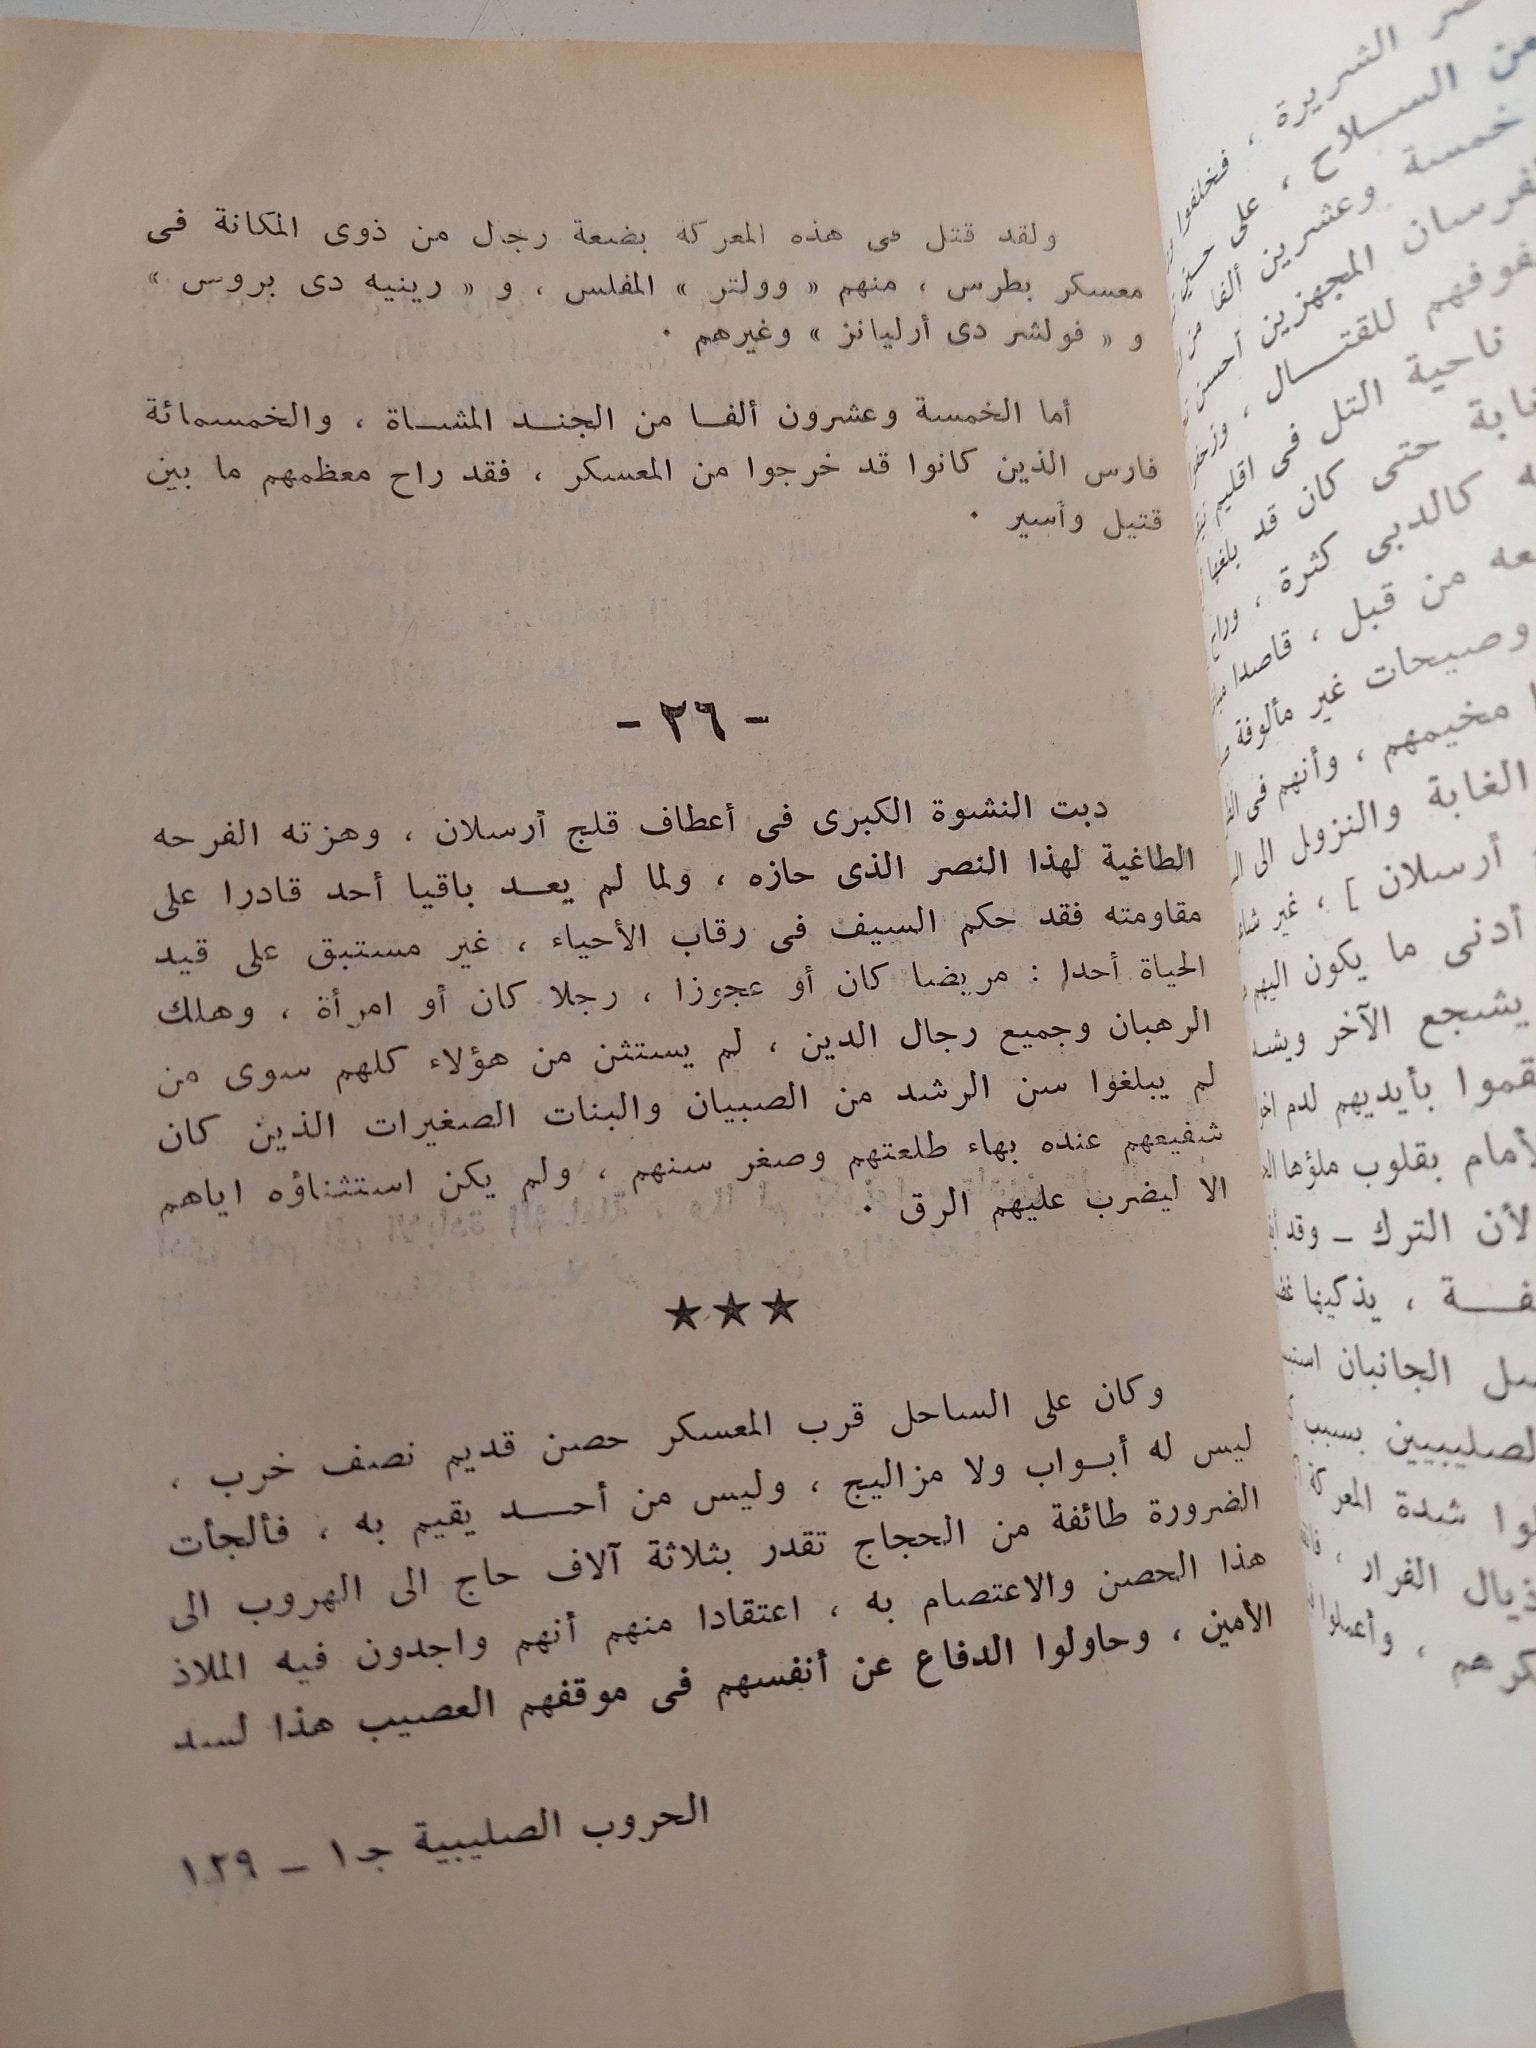 ولقد قتل فى هذه المعركة بضعة رجال من ذوى المكانة فى
معسكر بطرس ، منهم « وولتر » المفلس ، و « رينيه دى بروس »
و « فولشر دى أرليانز » وغيرهم .
أما الخمسة وعشرون ألفا من الجند المشاة ، والخمسمائة
فارس الذين كانوا قد خرجوا من المعسكر ، فقد راح معظمهم ما بين
قتيل وأسير .
- ٢٦ -
دبت النشوة الكبرى فى أعطاف قلج أرسلان ، وهزته الفرحه
الطاغية لهذا النصر الذى حازه ، ولما لم يعد باقيا أحد قادرا على
مقاومته فقد حكم السيف فى رقاب الأحياء ، غير مستبق على قيد
الحياة أحدا : مريضا كان أو عجوزا ، رجلا كان أو امرأة ، وهلك
الرهبان وجميع رجال الدين ، لم يستثن من هؤلاء كلهم سوى من
لم يبلغوا سن الرشد من الصبيان والبنات الصغيرات الذين كان
شفيعهم عنده بهاء طلعتهم وصغر سنهم ، ولم يكن استثناؤه اياهم
الا ليضرب عليهم الرق .
★★★
وكان على الساحل قرب المعسكر حصن قديم نصف خرب ،
ليس له أبواب ولا مزاليج ، وليس من أحد يقيم به ، فألجأت
الضرورة طائفة من الحجاج تقدر بثلاثة آلاف حاج الى الهروب الى
هذا الحصن والاعتصام به ، اعتقادا منهم أنهم واجدون فيه الملاذ
الأمين ، وحاولوا الدفاع عن أنفسهم فى موقفهم العصيب هذا لسد
الحروب الصليبية جـ١ ـ ١٢٩
الشريرة ، فخلفوا
عن السلاح ، على
خمسة وعشرين ألفا من
المجهزين أحسن
للقتال ،
ناحية التل فى اقليم
حتى كان قد بلغها
كالدبى كثرة ،
من قبل ، قاصدا
وصيحات غير مألوفة
مخيمهم ، وأنهم فى
الغابة والنزول الى
أرسلان ] ، غير
أدنى ما يكون اليهم
يشجع الآخر
بأيديهم لدم
بقلوب ملؤها
لأن الترك ـ وقد
، يذكيها
الجانبان
بسبب
شدة المعركة
الفرار ،